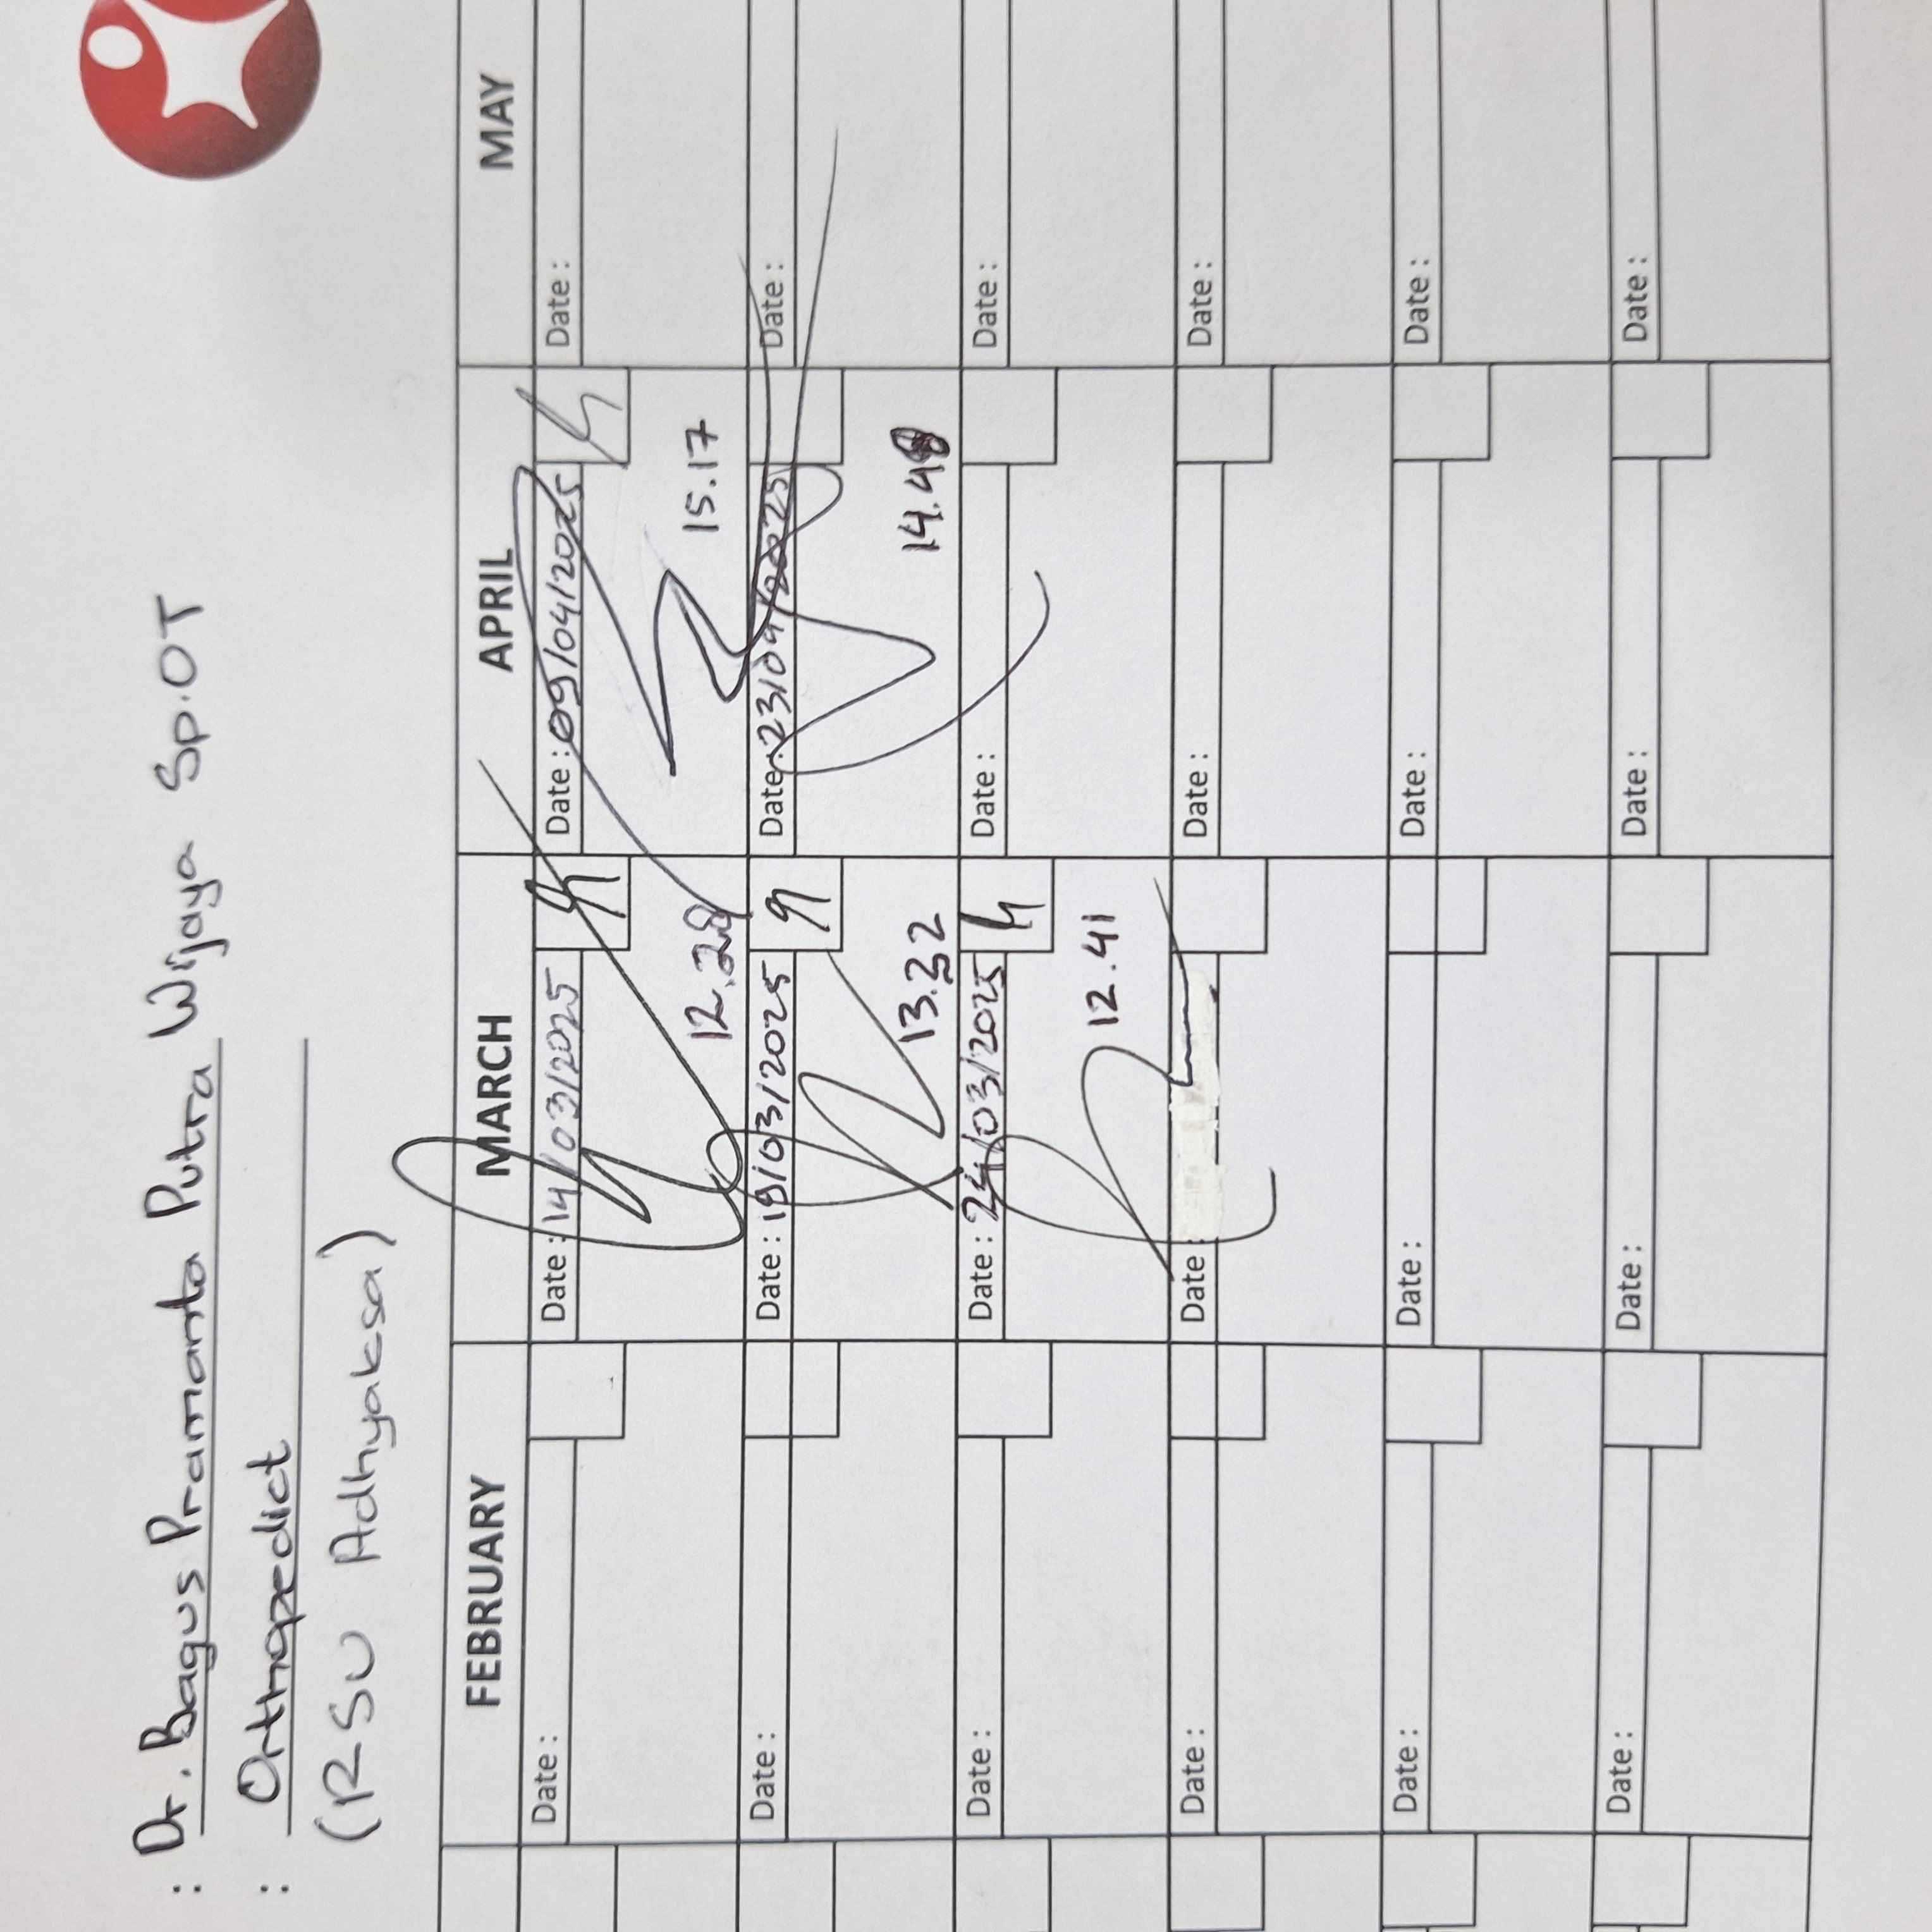 : Dr. Bagus Pramanta Putra Wijaya Sp.OT
: Orthopedict
(RSU Adhyaksa)
FEBRUARY MARCH APRIL MAY
Date : Date : 14/03/2025 Date : 09/04/2025 Date :
12.28 15.17
Date : Date : 19/03/2025 Date : 23/04/2025 Date :
13.32 14.48
Date : Date : 24/03/2025 Date : Date :
12.41
Date : Date : Date : Date :
Date : Date : Date : Date :
Date : Date : Date : Date :